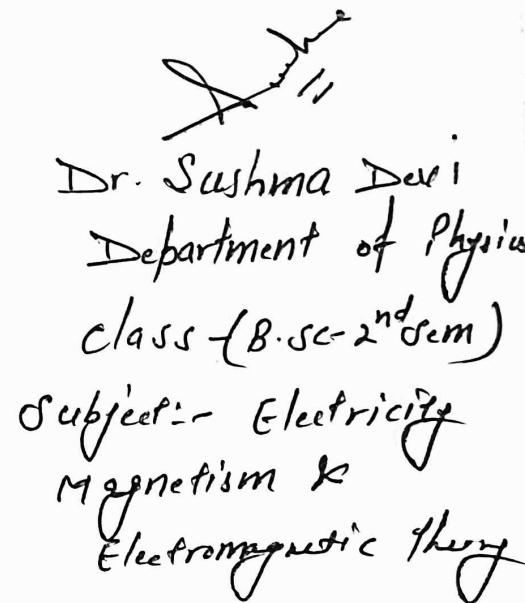 Dr. Sushma Devi
Department of Physics
class-(B.sc-2nd sem)
Subject:- Electricity
Magnetism &
Electromagnetic theory